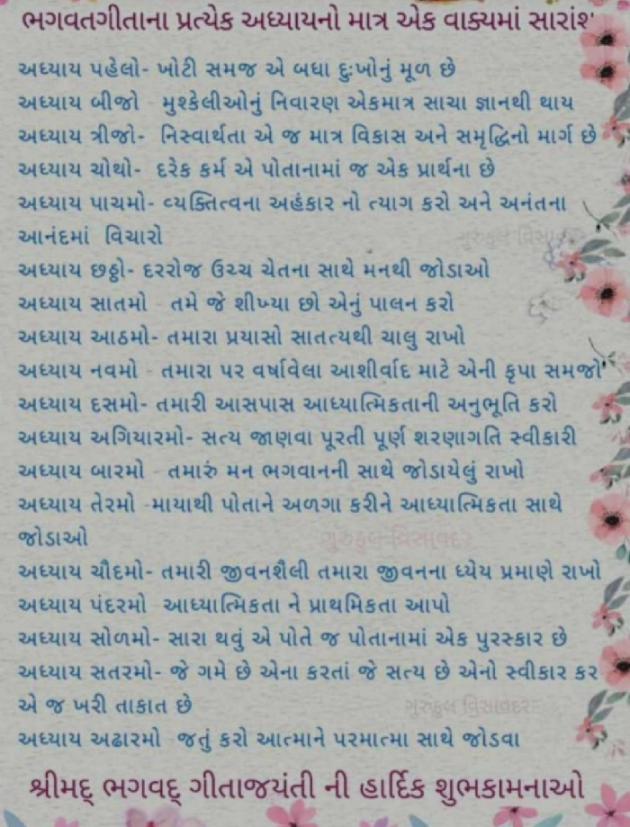 ભગવતગીતાના પ્રત્યેક અધ્યાયનો માત્ર એક વાક્યમાં સારાંશ
અધ્યાય પહેલો- ખોટી સમજ એ બધા દુઃખોનું મૂળ છે
અધ્યાય બીજો - મુશ્કેલીઓનું નિવારણ એકમાત્ર સાચા જ્ઞાનથી થાય
અધ્યાય ત્રીજો- નિસ્વાર્થતા એ જ માત્ર વિકાસ અને સમૃદ્ધિનો માર્ગ છે
અધ્યાય ચોથો- દરેક કર્મ એ પોતાનામાં જ એક પ્રાર્થના છે
અધ્યાય પાચમો- વ્યક્તિત્વના અહંકાર નો ત્યાગ કરો અને અનંતના
આનંદમાં વિચારો
અધ્યાય છઠ્ઠો- દરરોજ ઉચ્ચ ચેતના સાથે મનથી જોડાઓ
અધ્યાય સાતમો - તમે જે શીખ્યા છો એનું પાલન કરો
અધ્યાય આઠમો- તમારા પ્રયાસો સાતત્યથી ચાલુ રાખો
અધ્યાય નવમો - તમારા પર વર્ષાવેલા આશીર્વાદ માટે એની કૃપા સમજો
અધ્યાય દસમો- તમારી આસપાસ આધ્યાત્મિકતાની અનુભૂતિ કરો
અધ્યાય અગિયારમો- સત્ય જાણવા પૂરતી પૂર્ણ શરણાગતિ સ્વીકારી
અધ્યાય બારમો - તમારું મન ભગવાનની સાથે જોડાયેલું રાખો
અધ્યાય તેરમો -માયાથી પોતાને અળગા કરીને આધ્યાત્મિકતા સાથે
જોડાઓ
ગુરુકુલ વિસાવદર
અધ્યાય ચૌદમો- તમારી જીવનશૈલી તમારા જીવનના ધ્યેય પ્રમાણે રાખો
અધ્યાય પંદરમો આધ્યાત્મિકતા ને પ્રાથમિકતા આપો
અધ્યાય સોળમો- સારા થવું એ પોતે જ પોતાનામાં એક પુરસ્કાર છે
અધ્યાય સતરમો- જે ગમે છે એના કરતાં જે સત્ય છે એનો સ્વીકાર કર
એ જ ખરી તાકાત છે
ગુરુકુલ વિસાવદર
અધ્યાય અઢારમો જતું કરો આત્માને પરમાત્મા સાથે જોડવા
શ્રીમદ્ ભગવદ્ ગીતાજયંતી ની હાર્દિક શુભકામનાઓ